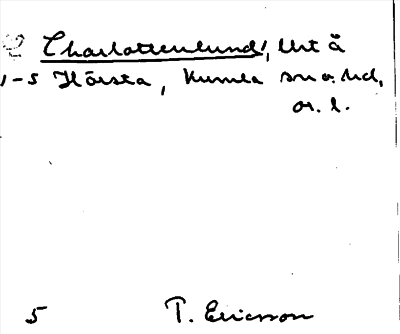 Charlottenlund, Urt å
1-5 Hörsta, Kumla sn o. hd,
ör. l.
5 T. Ericsson